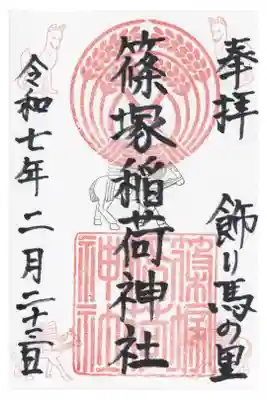 奉拝
飾り馬の里
篠塚稲荷神社
篠塚
稲荷
神社
令和七年二月